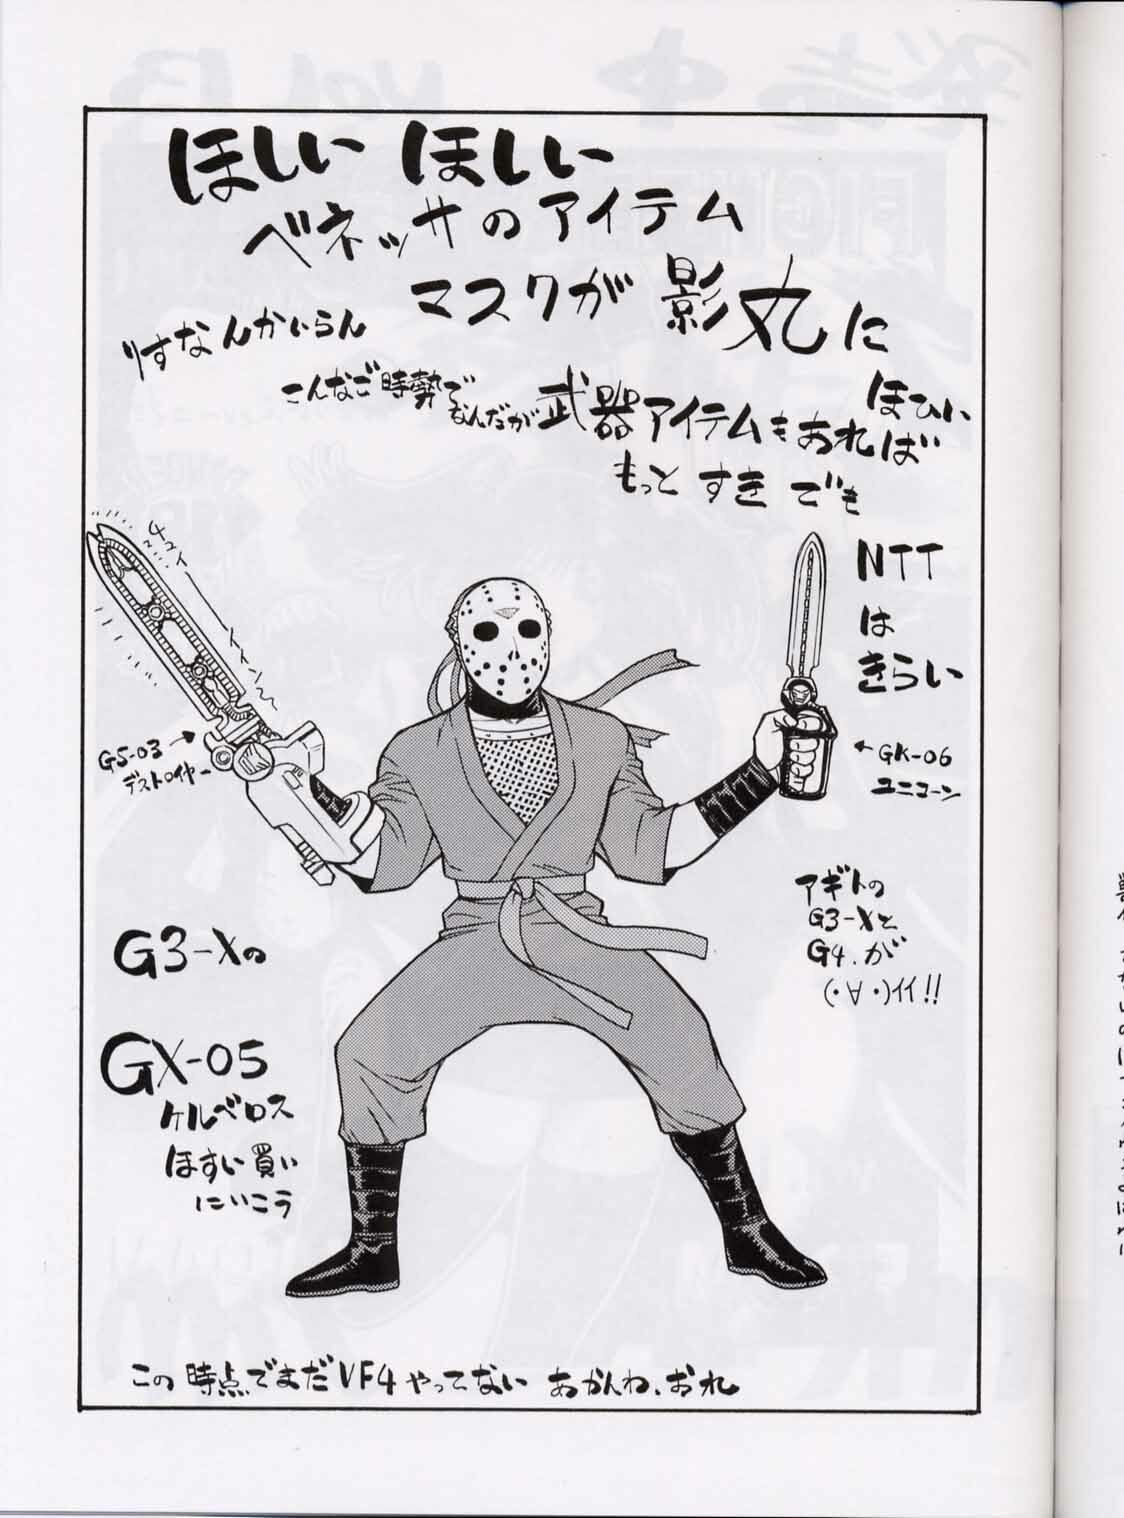 ほしい ほしい
ベネッサのアイテム
マスクが影丸に
ほひい
りすなんかいらん
こんなご時勢で
なんだが武器アイテムもあれば
もっと すき でも
NTT
は
きらい
チュイーーーイィーン
GS-03 →
デストロイヤー
← GK-06
ユニコーン
アギトの
G3-Xと
G4.が
(・∀・)イイ!!
G3-Xの
GX-05
ケルベロス
ほすい 買い
にいこう
この時点でまだVF4やってない あかんね、おれ